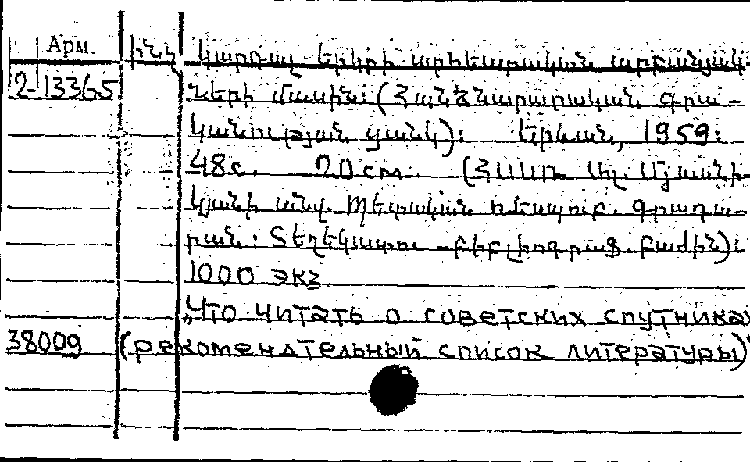 Арм. Ինչ կարդալ երկրի արհեստական արբանյակ-
2-13365 ների մասին: (Հանձնարարական գրա-
կանության ցանկ): Երևան, 1959:
48с. 20см. (ՀՍՍՌ Ալ. Մյասնի-
կյանի անվ. Պետական հանրապ. գրադա-
րան: Տեղեկատու -բիբլիոգրաֆ. բաժին):
1000 экз
„Что читать о советских спутниках
38009 (рекомендательный список литературы)"